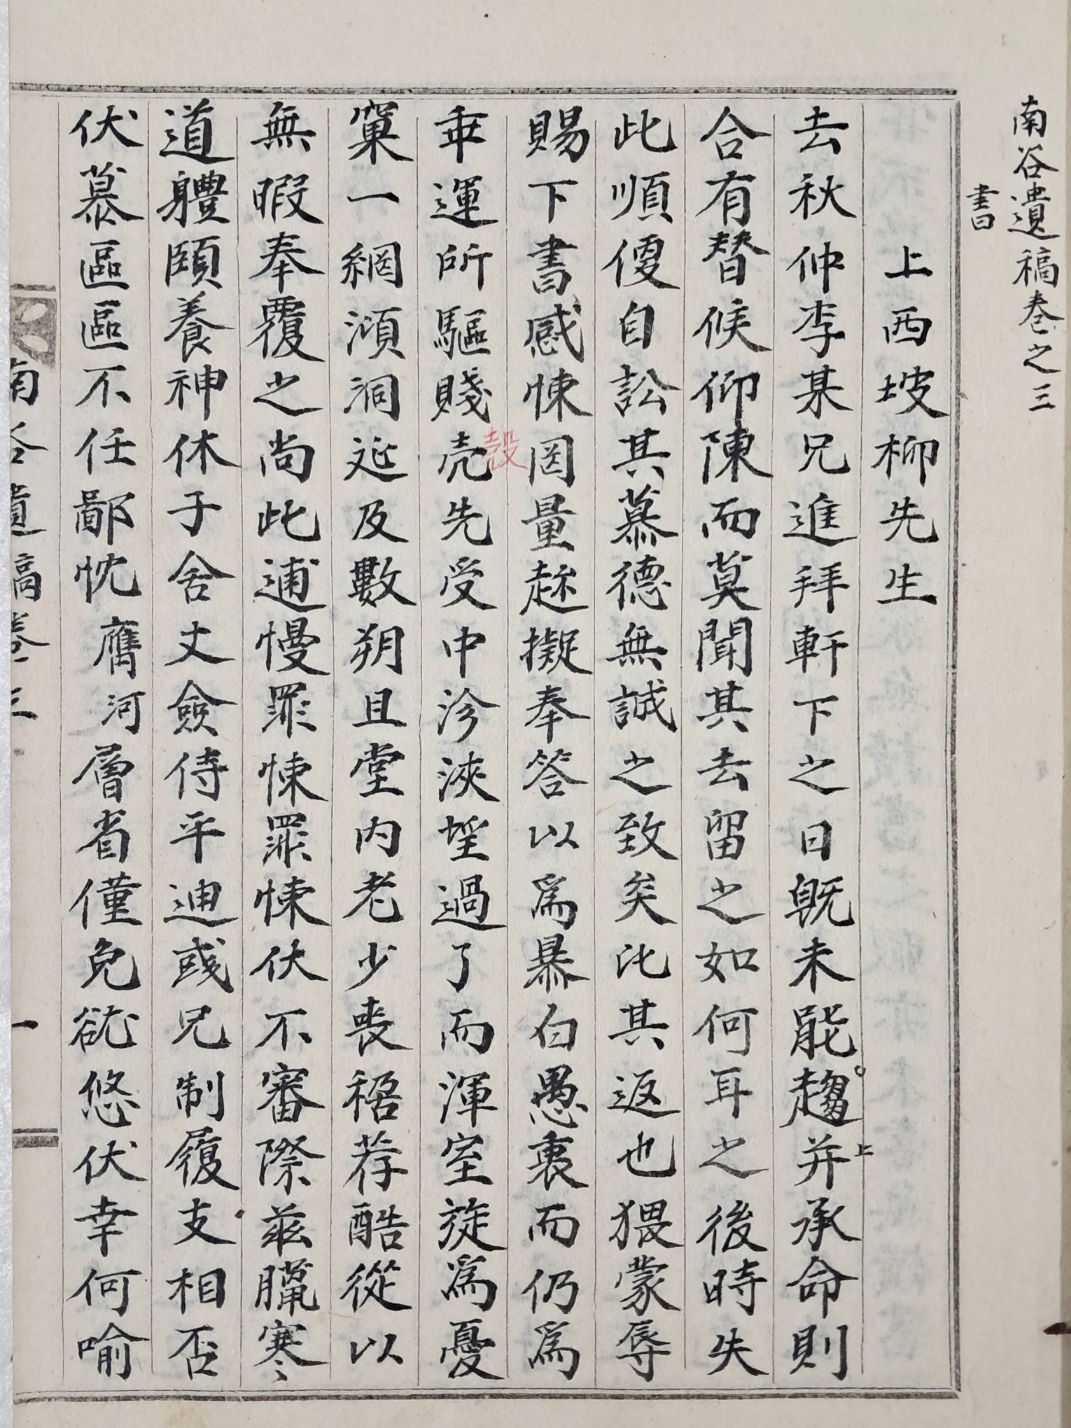 南谷遺稿卷之三
書
上西坡柳先生
去秋仲李某兄進拜軒下之日旣未能趨上并承命則
合有替候仰陳而莫聞其去留之如何耳之後時失
此順便自訟其慕德無誠之致矣比其返也猥蒙辱
賜下書感悚罔量趂擬奉答以爲暴白愚衷而仍爲
乖運所驅賤壳殼先受中沴浹望過了而渾室旋爲憂
窠一網澒洞延及數朔且堂內老少喪稔荐酷從以
無暇奉覆之尚此逋慢罪悚罪悚伏不審際玆臘寒
道體頤養神休子舍丈僉侍平迪彧兄制履支相否
伏慕區區不任鄙忱鷹河層省僅免欲悠伏幸何喻
南谷遺稿卷之三
一